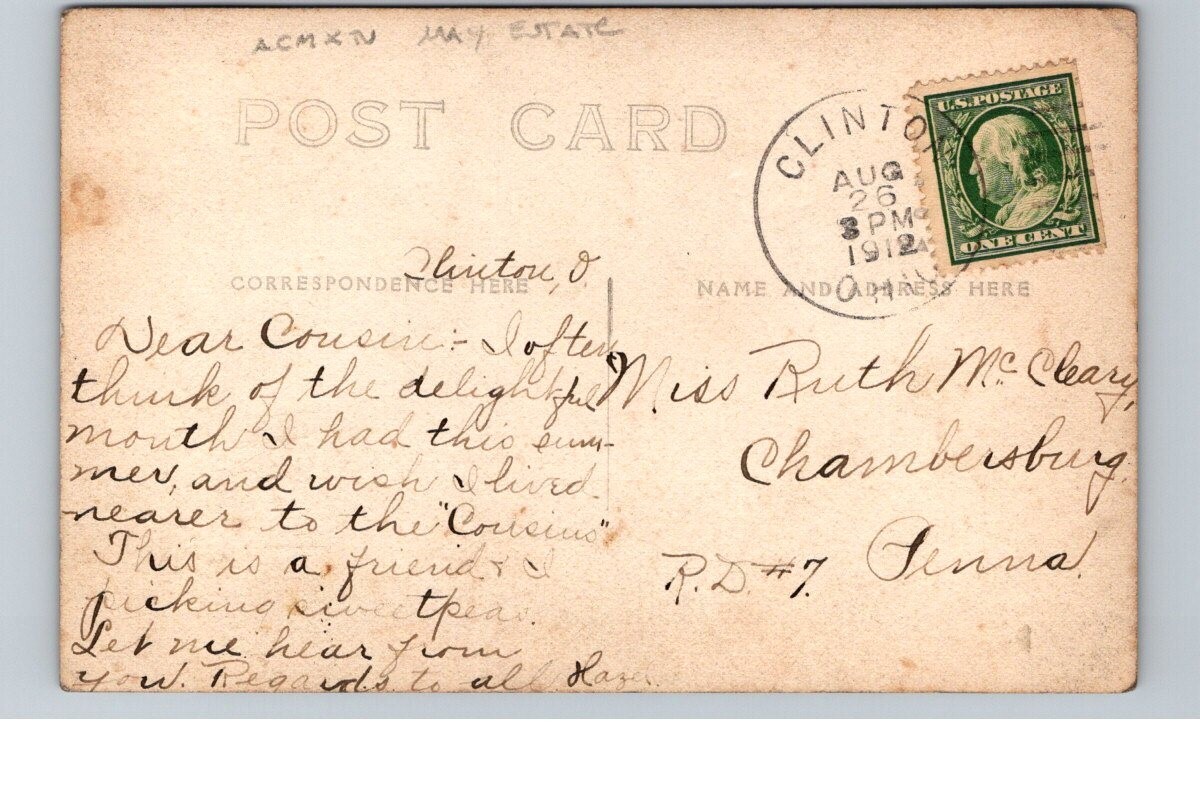 MAY ESTATE
POST CARD
CLINTON
AUG
26
3 PM
1912
OHIO
U.S. POSTAGE
ONE CENT
CORRESPONDENCE HERE
NAME AND ADDRESS HERE
Clinton, O.
Dear Cousin:- I often
think of the delightful
month I had this sum-
mer, and wish I lived
nearer to the "Cousins"
This is a friend & I
picking sweetpeas.
Let me hear from
you. Regards to all Hazel
Miss Ruth McCleary,
Chambersburg,
Penna.
R.D. #7.